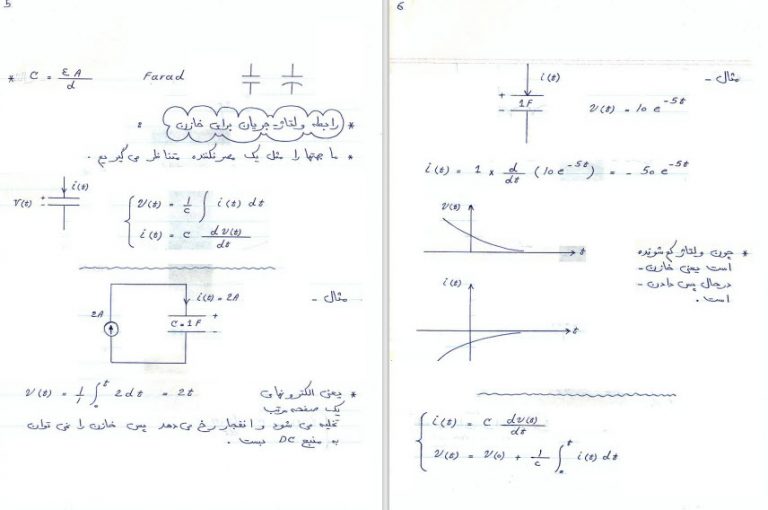 5
* C = εA/d Farad
* رابطه ولتاژ-جریان برای خازن :
* ما جهتها را مثل یک مصرفکننده متناظر می‌گیریم .
i(t)
V(t) + -
V(t) = 1/c ∫ i(t) dt
i(t) = C dV(t)/dt
مثال -
2A
i(t) = 2A
C = 1F + -
V(t) = 1/1 ∫₀ᵗ 2dt = 2t
* یعنی الکترونهای
یک صفحه مرتب
تخلیه می شود و انفجار رخ می‌دهد پس خازن را نمی توان
به منبع DC بست .
6
مثال -
i(t)
+ 1F -
V(t) = 10 e^-5t
i(t) = 1 × d/dt (10 e^-5t) = - 50 e^-5t
V(t)
t
* چون ولتاژ کم شونده
است یعنی خازن -
درحال پس دادن -
است .
i(t)
t
i(t) = C dV(t)/dt
V(t) = V(0) + 1/c ∫₀ᵗ i(t) dt